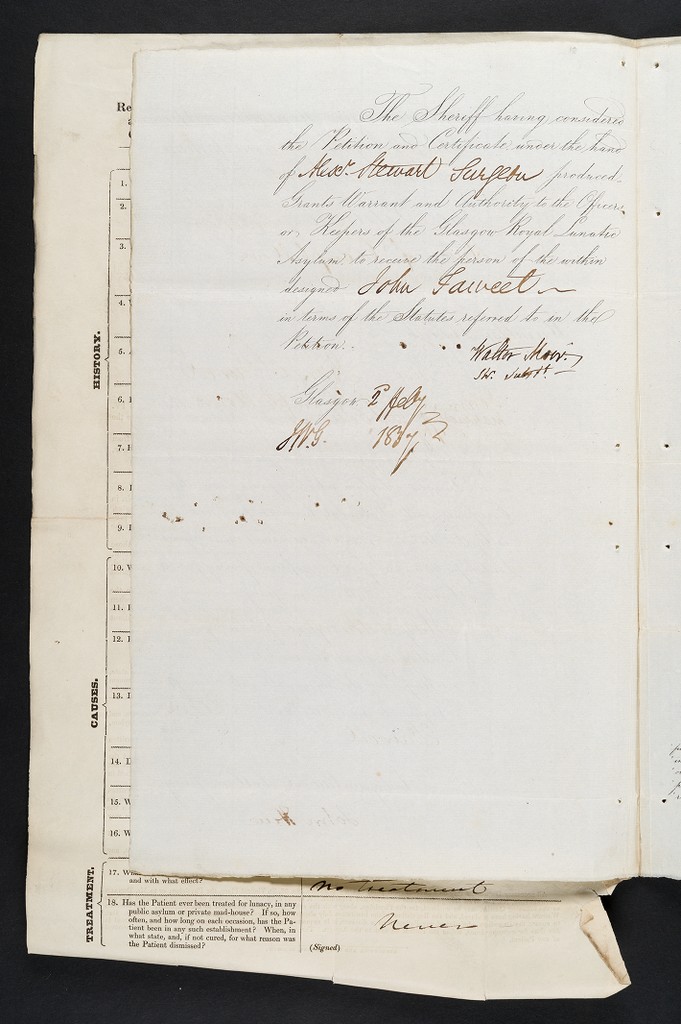 The Sheriff having considered
the Petition and Certificate under the hand
of Alexr. Stewart Surgeon produced
Grants Warrant and Authority to the Officers
or Keepers of the Glasgow Royal Lunatic
Asylum to receive the person of the within
designed John Fawcet
in terms of the Statutes referred to in the
Petition.
Walter Moir
Sh. Subst.
Glasgow 2d Feby
1837
Re
HISTORY.
1.
2.
3.
4.
5.
6.
7.
8.
9.
CAUSES.
10. W
11.
12.
13.
14.
15. W
16. W
TREATMENT.
17.
and with what effect?
no treatment
18. Has the Patient ever been treated for lunacy, in any
public asylum or private mad-house? If so, how
often, and how long on each occasion, has the Pa-
tient been in any such establishment? When, in
what state, and, if not cured, for what reason was
the Patient dismissed?
Never
(Signed)